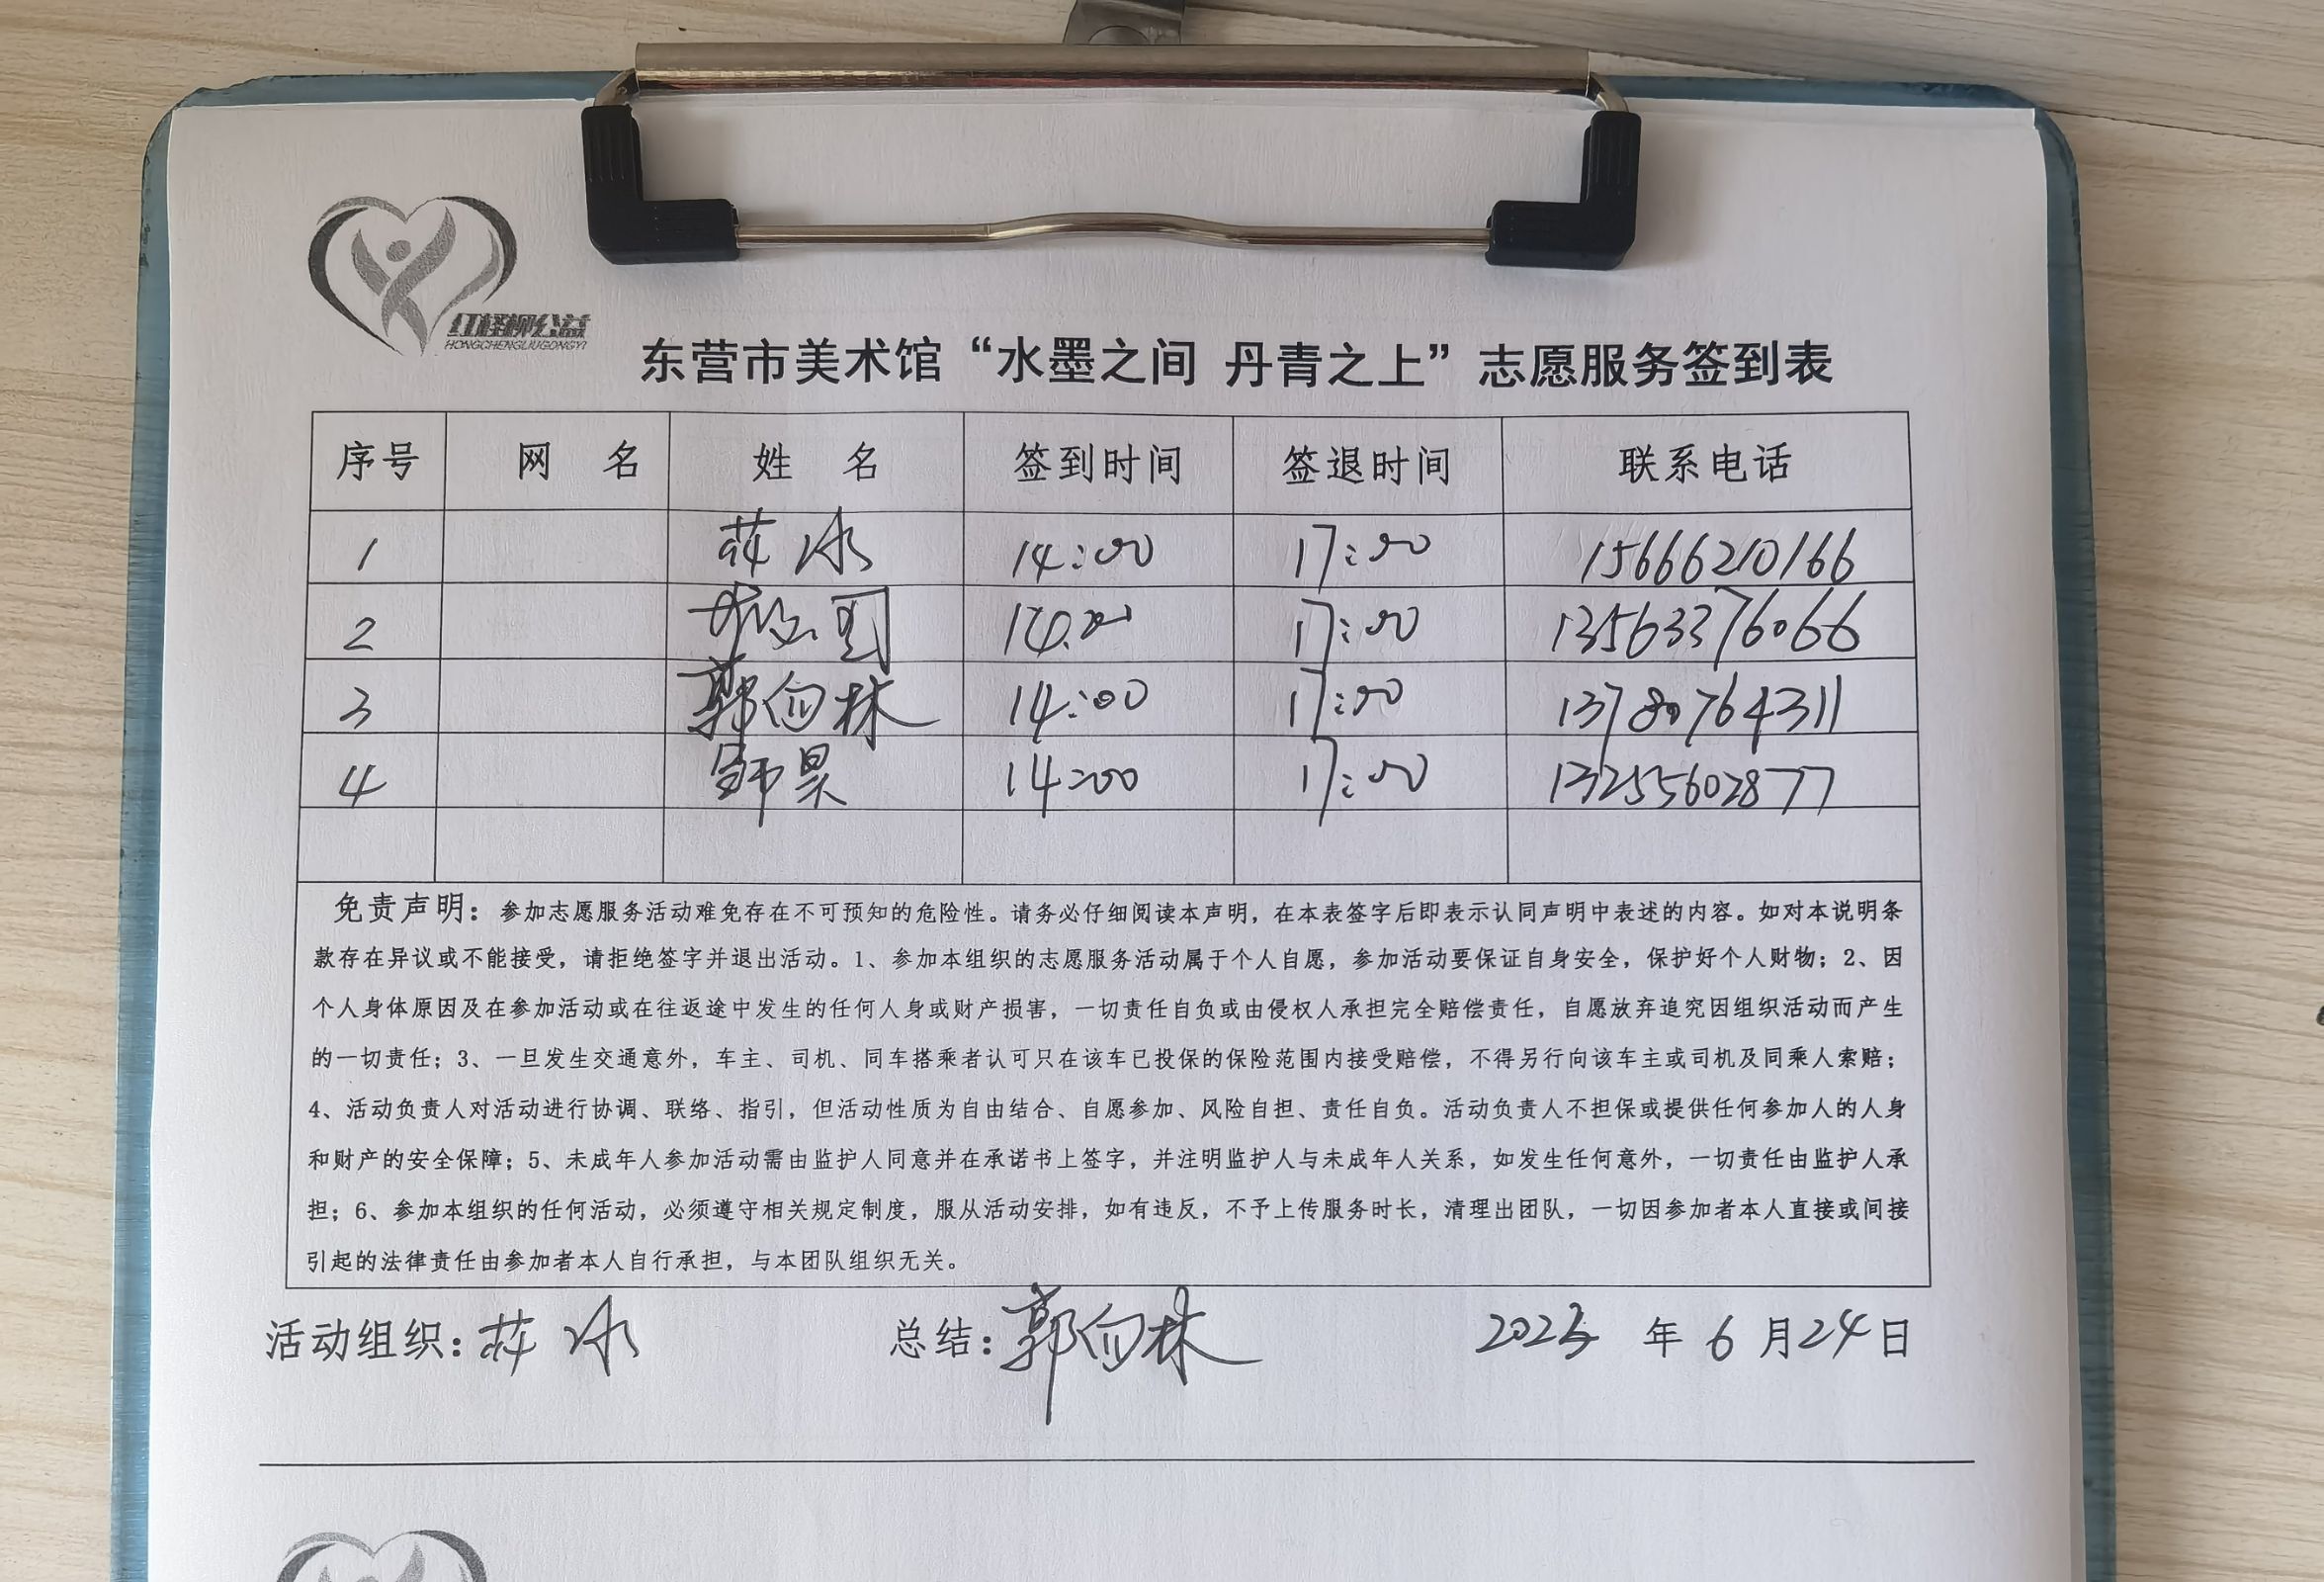 红柽柳公益
HONGCHENGLIUGONGYI
东营市美术馆“水墨之间 丹青之上”志愿服务签到表
序号 网 名 姓 名 签到时间 签退时间 联系电话
1 冰 14:00 17:00 15666210166
2 14:00 17:00 13563376066
3 郭向林 14:00 17:00 13780764311
4 昊 14:00 17:00 13255602877
免责声明：参加志愿服务活动难免存在不可预知的危险性。请务必仔细阅读本声明，在本表签字后即表示认同声明中表述的内容。如对本说明条
款存在异议或不能接受，请拒绝签字并退出活动。1、参加本组织的志愿服务活动属于个人自愿，参加活动要保证自身安全，保护好个人财物；2、因
个人身体原因及在参加活动或在往返途中发生的任何人身或财产损害，一切责任自负或由侵权人承担完全赔偿责任，自愿放弃追究因组织活动而产生
的一切责任；3、一旦发生交通意外，车主、司机、同车搭乘者认可只在该车已投保的保险范围内接受赔偿，不得另行向该车主或司机及同乘人索赔；
4、活动负责人对活动进行协调、联络、指引，但活动性质为自由结合、自愿参加、风险自担、责任自负。活动负责人不担保或提供任何参加人的人身
和财产的安全保障；5、未成年人参加活动需由监护人同意并在承诺书上签字，并注明监护人与未成年人关系，如发生任何意外，一切责任由监护人承
担；6、参加本组织的任何活动，必须遵守相关规定制度，服从活动安排，如有违反，不予上传服务时长，清理出团队，一切因参加者本人直接或间接
引起的法律责任由参加者本人自行承担，与本团队组织无关。
活动组织：冰 总结：郭向林 2023 年 6 月 24 日